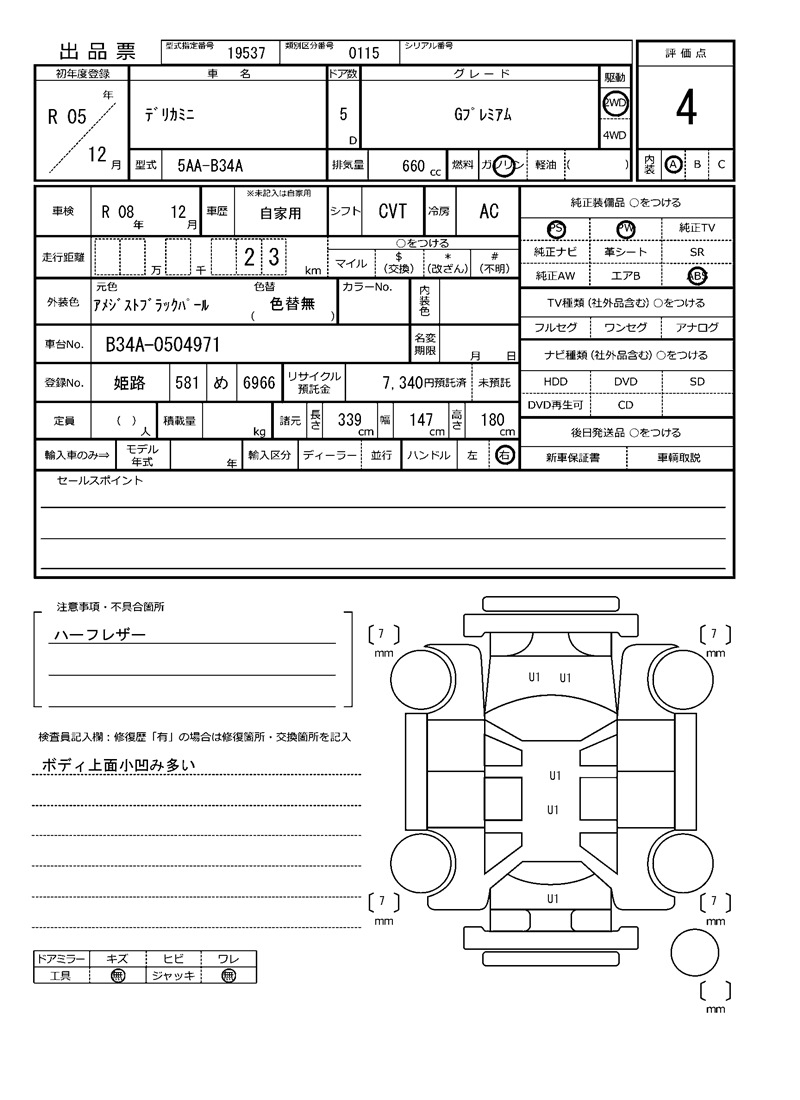 出品票
型式指定番号 19537 類別区分番号 0115 シリアル番号
評価点
4
内装 A B C
初年度登録 車名 ドア数 グレード 駆動
R 05 年 12 月
デリカミニ 5 D Gプレミアム 2WD
4WD
型式 5AA-B34A 排気量 660 cc 燃料 ガソリン 軽油 ( )
車検 R 08 年 12 月 車歴 ※未記入は自家用 自家用 シフト CVT 冷房 AC
走行距離 万 千 2 3 km
○をつける
マイル $(交換) *(改ざん) #(不明)
外装色 元色 アメジストブラックパール 色替 ( 色替無 ) カラーNo. 内装色
車台No. B34A-0504971 名変期限 月 日
登録No. 姫路 581 め 6966 リサイクル預託金 7,340円預託済 未預託
定員 ( ) 人 積載量 kg 諸元 長さ 339 cm 幅 147 cm 高さ 180 cm
輸入車のみ⇒ モデル年式 年 輸入区分 ディーラー 並行 ハンドル 左 右
純正装備品 ○をつける
PS PW 純正TV
純正ナビ 革シート SR
純正AW エアB ABS
TV種類(社外品含む)○をつける
フルセグ ワンセグ アナログ
ナビ種類(社外品含む)○をつける
HDD DVD SD
DVD再生可 CD
後日発送品 ○をつける
新車保証書 車輌取説
セールスポイント
注意事項・不具合箇所
ハーフレザー
検査員記入欄：修復歴「有」の場合は修復箇所・交換箇所を記入
ボディ上面小凹み多い
ドアミラー キズ ヒビ ワレ
工具 無 ジャッキ 無
7 mm
7 mm
U1 U1
U1
U1
U1
7 mm
7 mm
mm